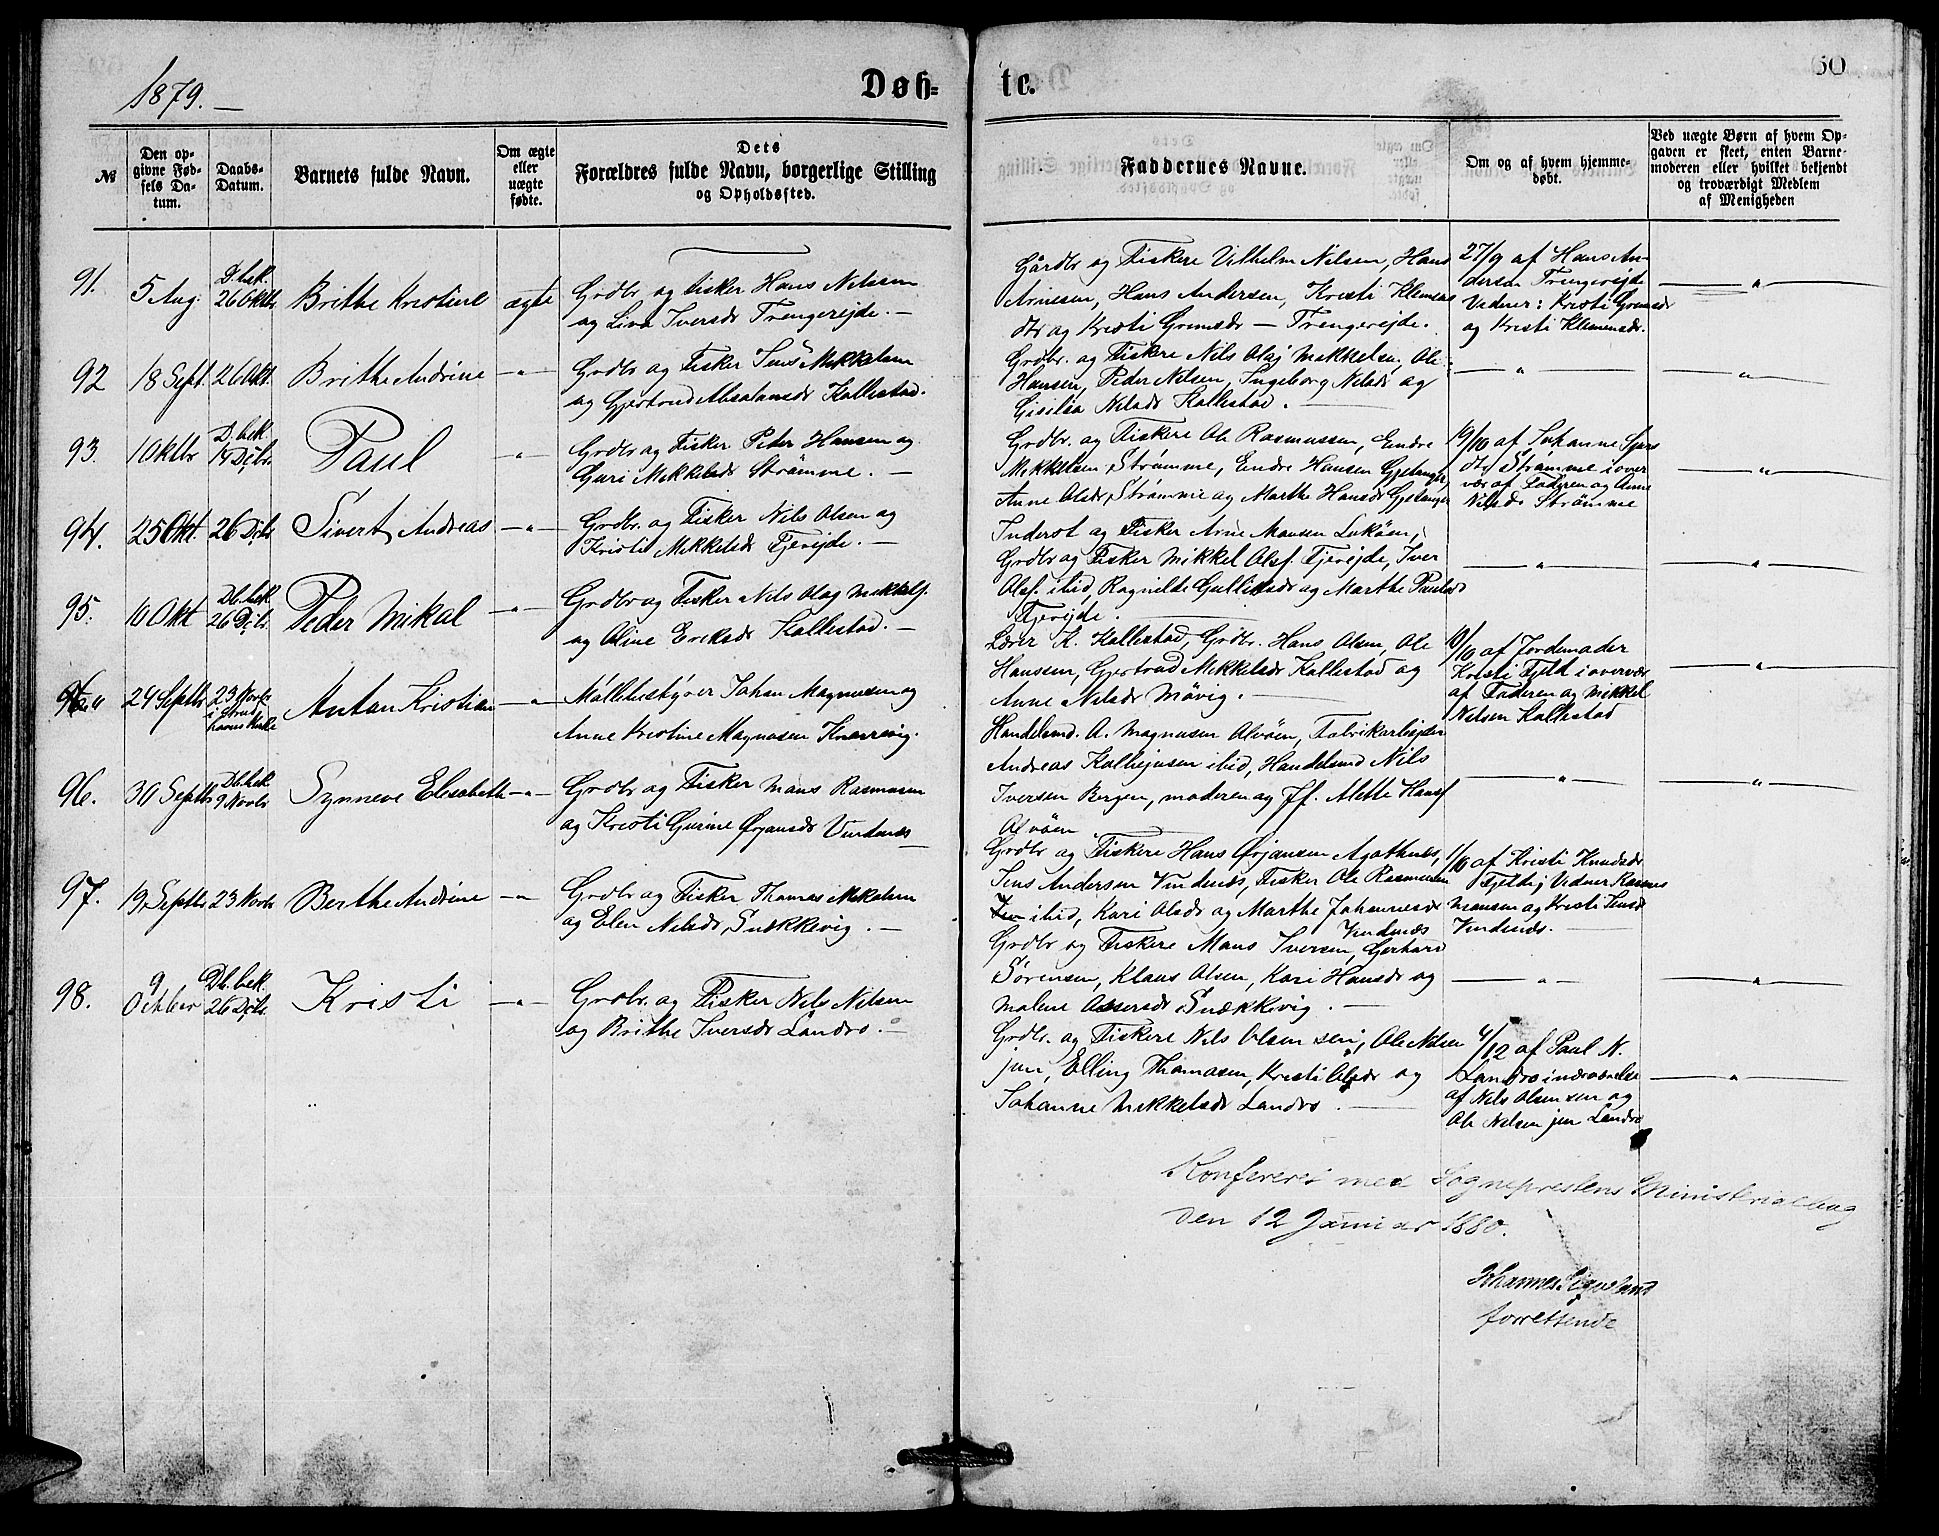 1879.
Døb=
te.
60
№
Den op-
givne Fød-
sels Da-
tum.
Daabs-
Datum.
Barnets fulde Navn.
Om ægte
eller
uægte
fødte.
Dets
Forældres fulde Navn, borgerlige Stilling
og Opholdssted.
Faddernes Navne.
Om og af hvem hjemme-
døbt.
Ved uægte Børn af hvem Op-
gaven er skeet, enten Barne-
moderen eller hvilket bekjendt
og troværdigt Medlem
af Menigheden
91.
5 Aug.
D. bek.
26 Oktbr
Brithe Kristine
ægte
Grdbr og fisker Hans Nilsen
og Liva Iversdr Trengerejde. —
Gårdbr og Fiskere Vilhelm Nilsen, Hans
Arnesen, Hans Andersen, Kristi Klemens
dtr og Kristi Gremsdr — Trengerejde.
27/9 af Hans An-
dersen Trengerejde
Vidner: Kristi Gremsdr
og Kristi Klemensdr.
— " —
92
18 Sept.
26 Okt.
Brithe Andrine
— " —
Grdbr og Fisker Jens Mikkelsen
og Gjertrud Absalonsdr Kallestad.
Grdbr. og Fiskere Nils Olaj Mikkelsen, Ole
Hansen, Peder Nilsen, Ingeborg Nilsdr og
Gisilia Nilsdr Kallestad. —
— " —
— " —
93.
1 Oktbr
D. bek.
14 Dcbr.
Paul
— " —
Grdbr og Fisker Peder Hansen og
Guri Mikkelsdr Strømme. —
Grdbr. og Fiskere Ole Rasmussen, Endre
Mikkelsen Strømme, Endre Hansen Gjetanger,
Anne Olsdr Strømme og Marthe Hansdr Gjetanger
19/10 af Johanne Sjurs
dtr Strømme i over
vær af Faderen og Anne
Nilsdr Strømme
— " —
94.
25 Okt.
26 Dcbr
Sivert Andreas
— " —
Grdbr. og Fisker Nils Olsen og
Kristi Mikkelsdr Tjerejde. —
Inderst og Fisker Arne Monsen Lokøen,
Grdbr og Fisker Mikkel Olsf. Tjerejde, Iver
Olsf. ibid, Ragnilde Gulliksdr og Marthe Paulsdr
Tjerejde. —
— " —
— " —
95.
10 Okt
Db. bek.
26 Dcbr.
Peder Mikal
— " —
Grdbr og Fisker Nils Olaj Mikkelsf.
og Oline Eriksdr Kallestad. —
Lærer K. Kallestad, Grdbr. Hans Olsen, Ole
Hanssen, Gjertrud Mikkelsdr Kallestad og
Anne Nilsdr Møvig. —
19/10 af Jordemoder
Kristi Fjeld i overvær
af Faderen og Mikkel
Nilsen Kallestad
— " —
24 Septbr
23 Novbr
Anton Kristian
— " —
Møllebestyrer Johan Magnusen og
Anne Kristine Magnusen Knarrevig.
Handelsmd. A. Magnusen Alvøen, Fabrikarbejder
Andreas Kallejusen ibid, Handelsmd Nils
Iversen Bergen, moderen og Jf. Alette Hansf
Alvøen
— " —
— " —
96.
30 Septbr
Db. bek.
9 Novbr
Synneve Elisabeth
— " —
Grdbr og Fisker Mons Rasmusen
og Kristi Gurine Ørjansdr Vindenes
Grdbr og Fiskere Hans Ørjansen Agothnes,
Jens Andersen Vindenes, Fisker Ole Rasmusen
ibid, Kari Olsdr og Marthe Johannesdr
Vindenæs
1/10 af Kristi Knudsdr
Fjelde; Vidner Rasmus
Monsen og Kristi Jensdr
Vindenæs. —
97.
19 Septbr
23 Novbr
Berthe Andrine
— " —
Grdbr og Fisker Thomas Mikalsen
og Elen Nilsdr, Snekkevig. —
Grdbr og Fiskere Mons Iversen, Gerhard
Sørensen, Klaus Olsen, Kari Hansdr og
Malene Assersdr Snækkevig. —
— " —
— " —
98.
9
October
Db. bek.
26 Dcbr.
Kristi
— " —
Grdbr. og Fisker Nils Nilsen
og Brithe Iversdr Landro. —
Grdbr. og Fiskere Nils Olsen sen, Ole Nilsen
jun, Elling Thomasen, Kristi Olsdr og
Johanne Mikkelsdr Landro. —
4/12 af Paul N.
Landro i nærværelse
af Nils Olsen sen og
Ole Nilsen jun Landro
— " —
Konfereret med Sogneprestens Ministerialbog
den 12 Januar 1880.
Johannes Sigvaland
forrettende